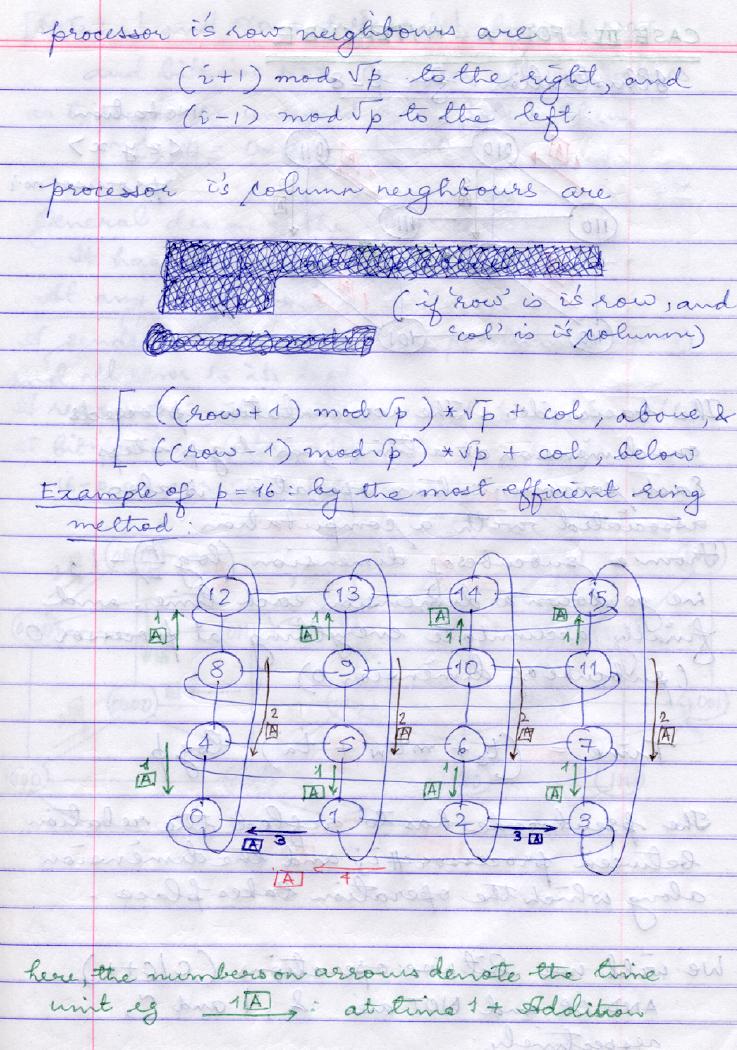 processor i's row neighbours are
(i+1) mod √p to the right, and
(i-1) mod √p to the left.
processor i's column neighbours are
(if 'row' is i's row, and
'col' is i's column)
((row+1) mod √p) * √p + col, above, &
((row-1) mod √p) * √p + col, below
Example of p=16: by the most efficient ring
method:
12 13 14 15
1 A 1 A A 1 A 1
8 9 10 11
2 A 2 A 2 A 2 A
4 5 6 7
1 A 1 A 1 A 1 A
0 1 2 3
A 3 3 A
A 4
here, the numbers on arrows denote the time
unit eg 1 A : at time 1 + Addition